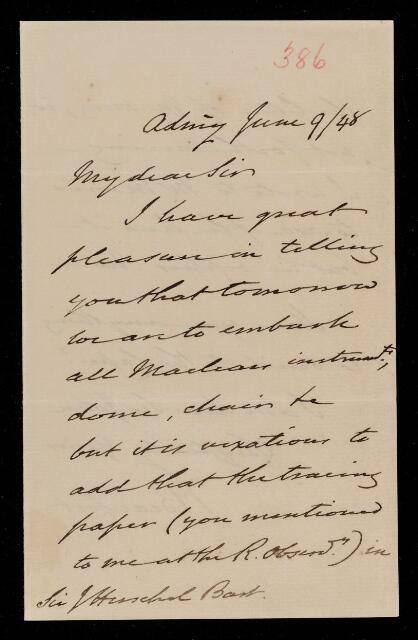 386
Admty June 9/48
My dear Sir
I have great
pleasure in telling
you that tomorrow
we are to embark
all Maclears instrumts,
dome, chair &c
but it is vexatious to
add that the tracing
paper (you mentioned
to me at the R. Observy) in
Sir J Herschel Bart.